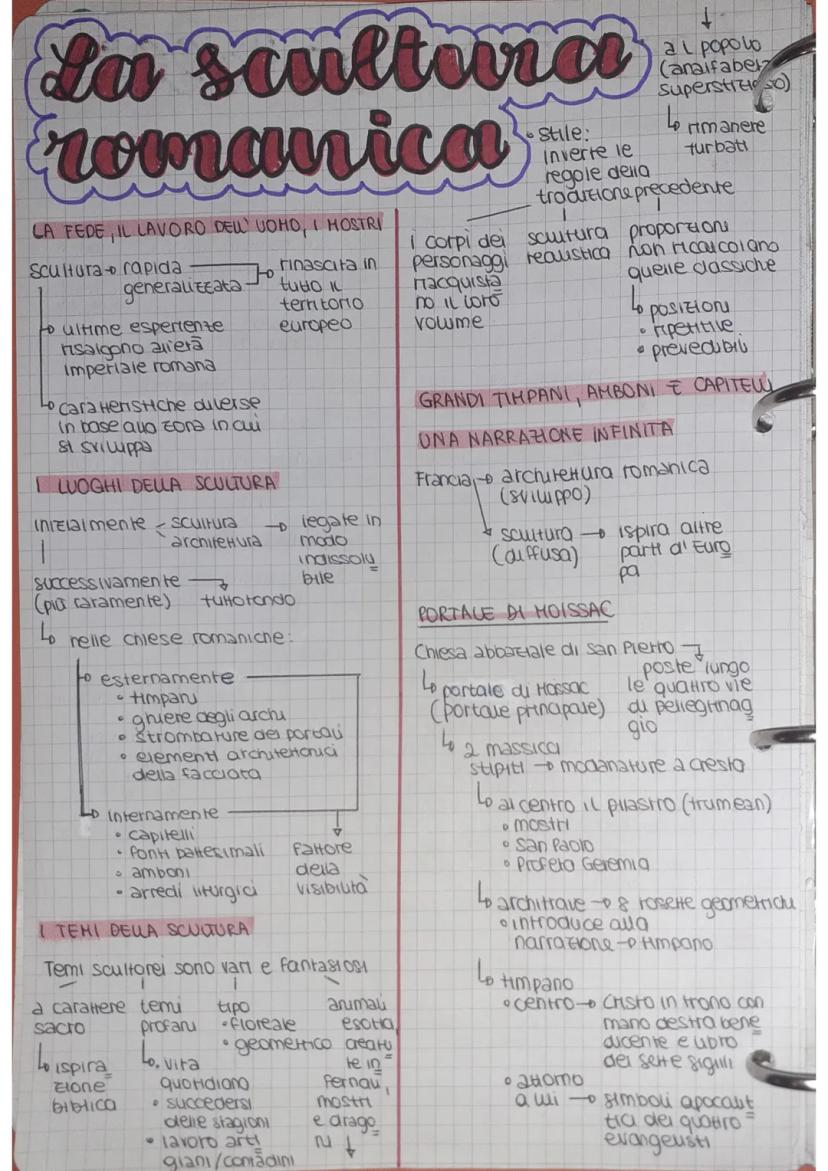 La scultura
romanica
LA FEDE, IL LAVORO DELL'UOMO, I MOSTRI
scultura → rapida
generalizzata
→ rinascita in
tutto il
territorio
europeo
→ ultime esperienze
risalgono all'erà
imperiale romana
↳ caratteristiche diverse
in base alla zona in cui
si sviluppa
I LUOGHI DELLA SCULTURA
inizialmente - scultura
architettura
→ legate in
modo
indissolu
bile
successivamente → tuttotondo
(più raramente)
↳ nelle chiese romaniche:
→ esternamente
• timpani
• ghiere degli archi
• strombature dei portali
• elementi architettonici
della facciata
↳ internamente
• capitelli
• fonti battesimali
• amboni
• arredi liturgici
fattore
della
visibilità
I TEMI DELLA SCULTURA
Temi scultorei sono vari e fantasiosi
a carattere
sacro
↳ ispira
zione
biblica
temi
profani
↳. vita
quotidiano
• succedersi
delle stagioni
• lavoro arti
giani/contadini
tipo
• floreale
• geometrico
animali
esotici,
creatu
re in
fernali,
mostri
e drago
ni ↓
↓
al popolo
(analfabeta
superstizioso)
↳ rimanere
turbati
• stile:
inverte le
regole della
tradizione precedente
i corpi dei
personaggi
riacquista
no il loro
volume
scultura
realistica
proporzioni
non ricalcolano
quelle classiche
↳ posizioni
• ripetitive
• prevedibili
GRANDI TIMPANI, AMBONI E CAPITELLI
UNA NARRAZIONE INFINITA
Francia → architettura romanica
(sviluppo)
scultura → ispira altre
(diffusa) parti d'Euro
pa
PORTALE DI MOISSAC
Chiesa abbaziale di san Pietro →
poste lungo
le quattro vie
di pellegrinag
gio
↳ portale di Mossac
(portale principale)
↳ 2 massicci
stipiti → modanature a cresta
↳ al centro il pilastro (trumean)
• mostri
• San Paolo
• Profeta Geremia
↳ architrave → 8 rosette geometriche
• introduce alla
narrazione → timpano
↳ timpano
• centro → Cristo in trono con
mano destra bene
dicente e libro
dei sette sigilli
• attorno
a lui → simboli apocalit
tici dei quattro
evangelisti